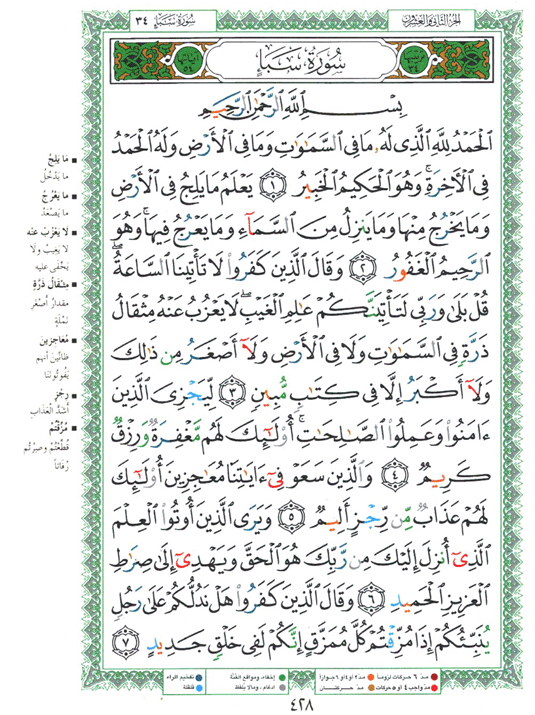 الجزء الثاني والعشرون
سورة سبإ ٣٤
سُورَةُ سَبَإٍ
بِسْمِ ٱللَّهِ ٱلرَّحْمَٰنِ ٱلرَّحِيمِ
ٱلْحَمْدُ لِلَّهِ ٱلَّذِى لَهُۥ مَا فِى ٱلسَّمَٰوَٰتِ وَمَا فِى ٱلْأَرْضِ وَلَهُ ٱلْحَمْدُ
فِى ٱلْأَخِرَةِ ۚ وَهُوَ ٱلْحَكِيمُ ٱلْخَبِيرُ ۝١ يَعْلَمُ مَا يَلِجُ فِى ٱلْأَرْضِ
وَمَا يَخْرُجُ مِنْهَا وَمَا يَنزِلُ مِنَ ٱلسَّمَآءِ وَمَا يَعْرُجُ فِيهَا ۚ وَهُوَ
ٱلرَّحِيمُ ٱلْغَفُورُ ۝٢ وَقَالَ ٱلَّذِينَ كَفَرُوا۟ لَا تَأْتِينَا ٱلسَّاعَةُ ۖ
قُلْ بَلَىٰ وَرَبِّى لَتَأْتِيَنَّكُمْ عَٰلِمِ ٱلْغَيْبِ ۖ لَا يَعْزُبُ عَنْهُ مِثْقَالُ
ذَرَّةٍ فِى ٱلسَّمَٰوَٰتِ وَلَا فِى ٱلْأَرْضِ وَلَآ أَصْغَرُ مِن ذَٰلِكَ
وَلَآ أَكْبَرُ إِلَّا فِى كِتَٰبٍ مُّبِينٍ ۝٣ لِّيَجْزِىَ ٱلَّذِينَ
ءَامَنُوا۟ وَعَمِلُوا۟ ٱلصَّٰلِحَٰتِ ۚ أُو۟لَٰٓئِكَ لَهُم مَّغْفِرَةٌ وَرِزْقٌ
كَرِيمٌ ۝٤ وَٱلَّذِينَ سَعَوْ فِىٓ ءَايَٰتِنَا مُعَٰجِزِينَ أُو۟لَٰٓئِكَ
لَهُمْ عَذَابٌ مِّن رِّجْزٍ أَلِيمٌ ۝٥ وَيَرَى ٱلَّذِينَ أُوتُوا۟ ٱلْعِلْمَ
ٱلَّذِىٓ أُنزِلَ إِلَيْكَ مِن رَّبِّكَ هُوَ ٱلْحَقَّ وَيَهْدِىٓ إِلَىٰ صِرَٰطِ
ٱلْعَزِيزِ ٱلْحَمِيدِ ۝٦ وَقَالَ ٱلَّذِينَ كَفَرُوا۟ هَلْ نَدُلُّكُمْ عَلَىٰ رَجُلٍ
يُنَبِّئُكُمْ إِذَا مُزِّقْتُمْ كُلَّ مُمَزَّقٍ إِنَّكُمْ لَفِى خَلْقٍ جَدِيدٍ ۝٧
■ ما يلج
ما يدخل
■ ما يعرج
ما يصعد
■ لا يعزب عنه
لا يغيب ولا
يخفى عليه
■ مثقال ذرة
مقدار أصغر
نملة
■ معاجزين
ظانين أنهم
يفوتوننا
■ رجز
أشد العذاب
■ مزقتم
قطعتم وصرتم
رفاتا
مد ٦ حركات لزوما مد ٢ أو ٤ أو ٦ جوازا إخفاء، ومواقع الغنة تفخيم الراء
مد واجب ٤ أو ٥ حركات مد حركتان ادغام، وما لا يلفظ قلقلة
٤٢٨